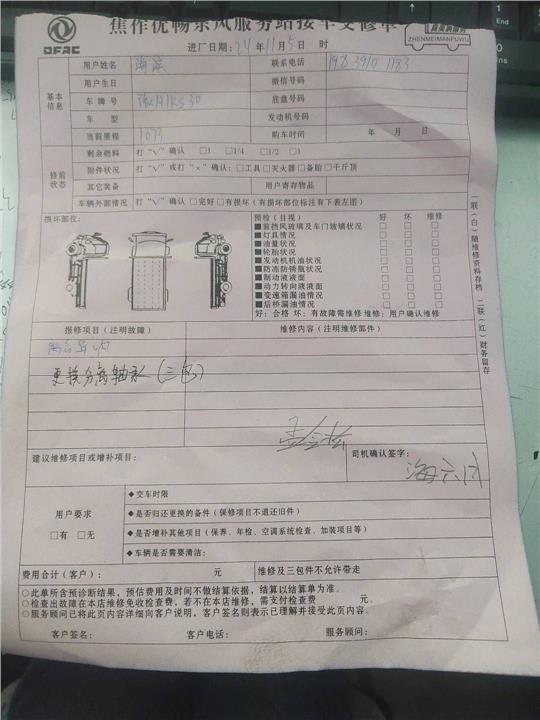 DFAC
焦作优畅东风服务站接车交修单
真美满服务
ZHENMEIMANFUWU
进厂日期: 24 年 11 月 5 日 时
基本信息
用户姓名 联系电话 1183
用户生日 微信号码
车牌号 底盘号码
车型 发动机号码
当前里程 购车时间 年 月 日
修前状态
剩余燃料 打“√”确认 □1 □1/4 □1/2 □1
附件状况 打“√”或打“×”确认: □工具 □灭火器 □备胎 □千斤顶
其它装备 用户寄存物品
车辆外部情况 打“√”确认 □完好 □有损坏 (有损坏部位标注有下表左图)
损坏部位:
预检(目视) 好 坏 维修
■前挡风玻璃及车门玻璃状况 □ □ □
■灯具情况 □ □ □
■油量状况 □ □ □
■轮胎状况 □ □ □
■发动机机油状况 □ □ □
■防冻防锈瓶状况 □ □ □
■制动液液面 □ □ □
■动力转向液液面 □ □ □
■变速箱漏油情况 □ □ □
■后桥漏油情况 □ □ □
好: 合格 坏: 有故障需维修 维修: 用户确认维修
一联(白)随维修资料存档 二联(红)财务留存
报修项目(注明故障) 维修内容(注明维修部件)
更换分离轴承(三包)
建议维修项目或增补项目: 司机确认签字:
用户要求
□有 □无
◆交车时限
◆是否归还更换的备件(保修项目不退还旧件)
◆是否增补其他项目(保养、年检、空调系统检查、加装项目等)
◆车辆是否需要清洁:
费用合计(客户): 元 维修及三包件不允许带走
○此单所含预诊断结果,预估费用及时间不做结算依据,结算以结算单为准。
○检查出故障在本店维修免收检查费,若不在本店维修,需支付检查费 元。
○服务顾问已将此页内容详细向客户说明,客户签名则表示已理解并接受此页内容。
客户签名: 客户电话: 服务顾问: